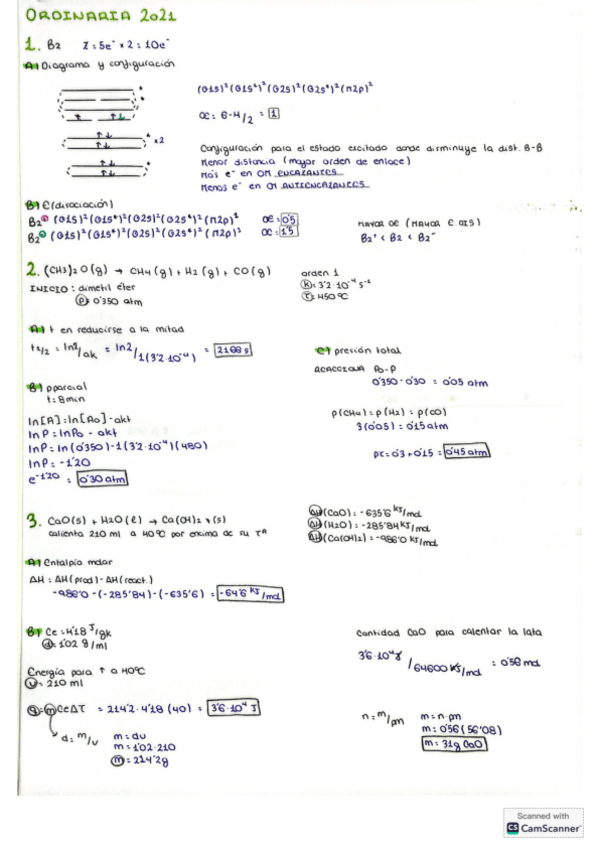 ORDINARIA 2021
1. B2 Z=5e⁻ x 2 = 10e⁻
A) Diagrama y configuración
(σ1s)²(σ1s*)²(σ2s)²(σ2s*)²(π2p)²
OE = 6-4/2 = 1
x2
Configuración para el estado excitado donde disminuye la dist. B-B
Menor distancia (mayor orden de enlace)
Más e⁻ en OM ENLAZANTES
Menos e⁻ en OM ANTIENLAZANTES
B) E(disociación)
B2⁺ (σ1s)²(σ1s*)²(σ2s)²(σ2s*)²(π2p)¹ OE = 0'5
B2⁻ (σ1s)²(σ1s*)²(σ2s)²(σ2s*)²(π2p)³ OE = 1'5
MAYOR OE (MAYOR E. DIS)
B2⁺ < B2 < B2⁻
2. (CH3)2O(g) → CH4(g) + H2(g) + CO(g)
INICIO: dimetil éter
P = 0'350 atm
orden 1
K = 3'2·10⁻⁴ s⁻¹
T = 450ºC
A) t en reducirse a la mitad
t1/2 = ln2/ak = ln2/1(3'2·10⁻⁴) = 2166 s
B) pparcial
t = 8min
ln[A] = ln[A0] - akt
lnP = lnP0 - akt
lnP = ln(0'350) - 1(3'2·10⁻⁴)(480)
lnP = -1'20
e⁻¹'²⁰ = 0'30 atm
C) presión total
P0-P
0'350-0'30 = 0'05 atm
P(CH4) = P(H2) = P(CO)
3(0'05) = 0'15 atm
Pt = 0'3+0'15 = 0'45 atm
3. CaO(s) + H2O(l) → Ca(OH)2 (s)
calienta 210 ml a 40ºC por encima de su Tª
ΔH(CaO) = -635'6 kJ/mol
ΔH(H2O) = -285'84 kJ/mol
ΔH(Ca(OH)2) = -986'0 kJ/mol
A) Entalpía molar
ΔH = ΔH(prod) - ΔH(react.)
-986'0 - (-285'84) - (-635'6) = -64'6 kJ/mol
B) Ce = 4'18 J/gk
d = 1'02 g/ml
Energía para ↑ a 40ºC
V = 210 ml
q = mCeΔT = 214'2 · 4'18 (40) = 3'6·10⁴ J
d = m/v
m = dv
m = 1'02·210
m = 214'2g
Cantidad CaO para calentar la lata
3'6·10⁴ J / 64600 kJ/mol = 0'56 mol
n = m/pm
m = n·pm
m = 0'56(56'08)
m = 31g CaO
Scanned with
CS CamScanner